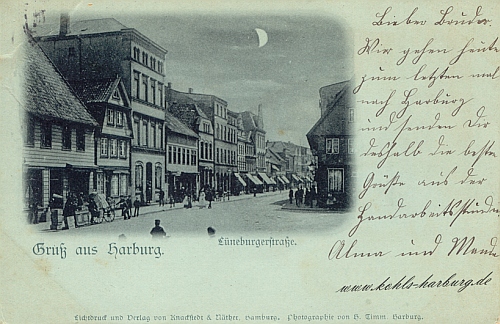 Lieber Bruder
Wir gehen heute
zum letzten mal
nach Harburg
und senden Dir
deshalb die beste
Grüße aus der
Handarbeitsstunde
Alma und
www.kohls-harburg.de
Gruß aus Harburg.
Lüneburgerstraße.
Lichtdruck und Verlag von Knackstedt & Näther, Hamburg. Photographie von B. Timm. Harburg.